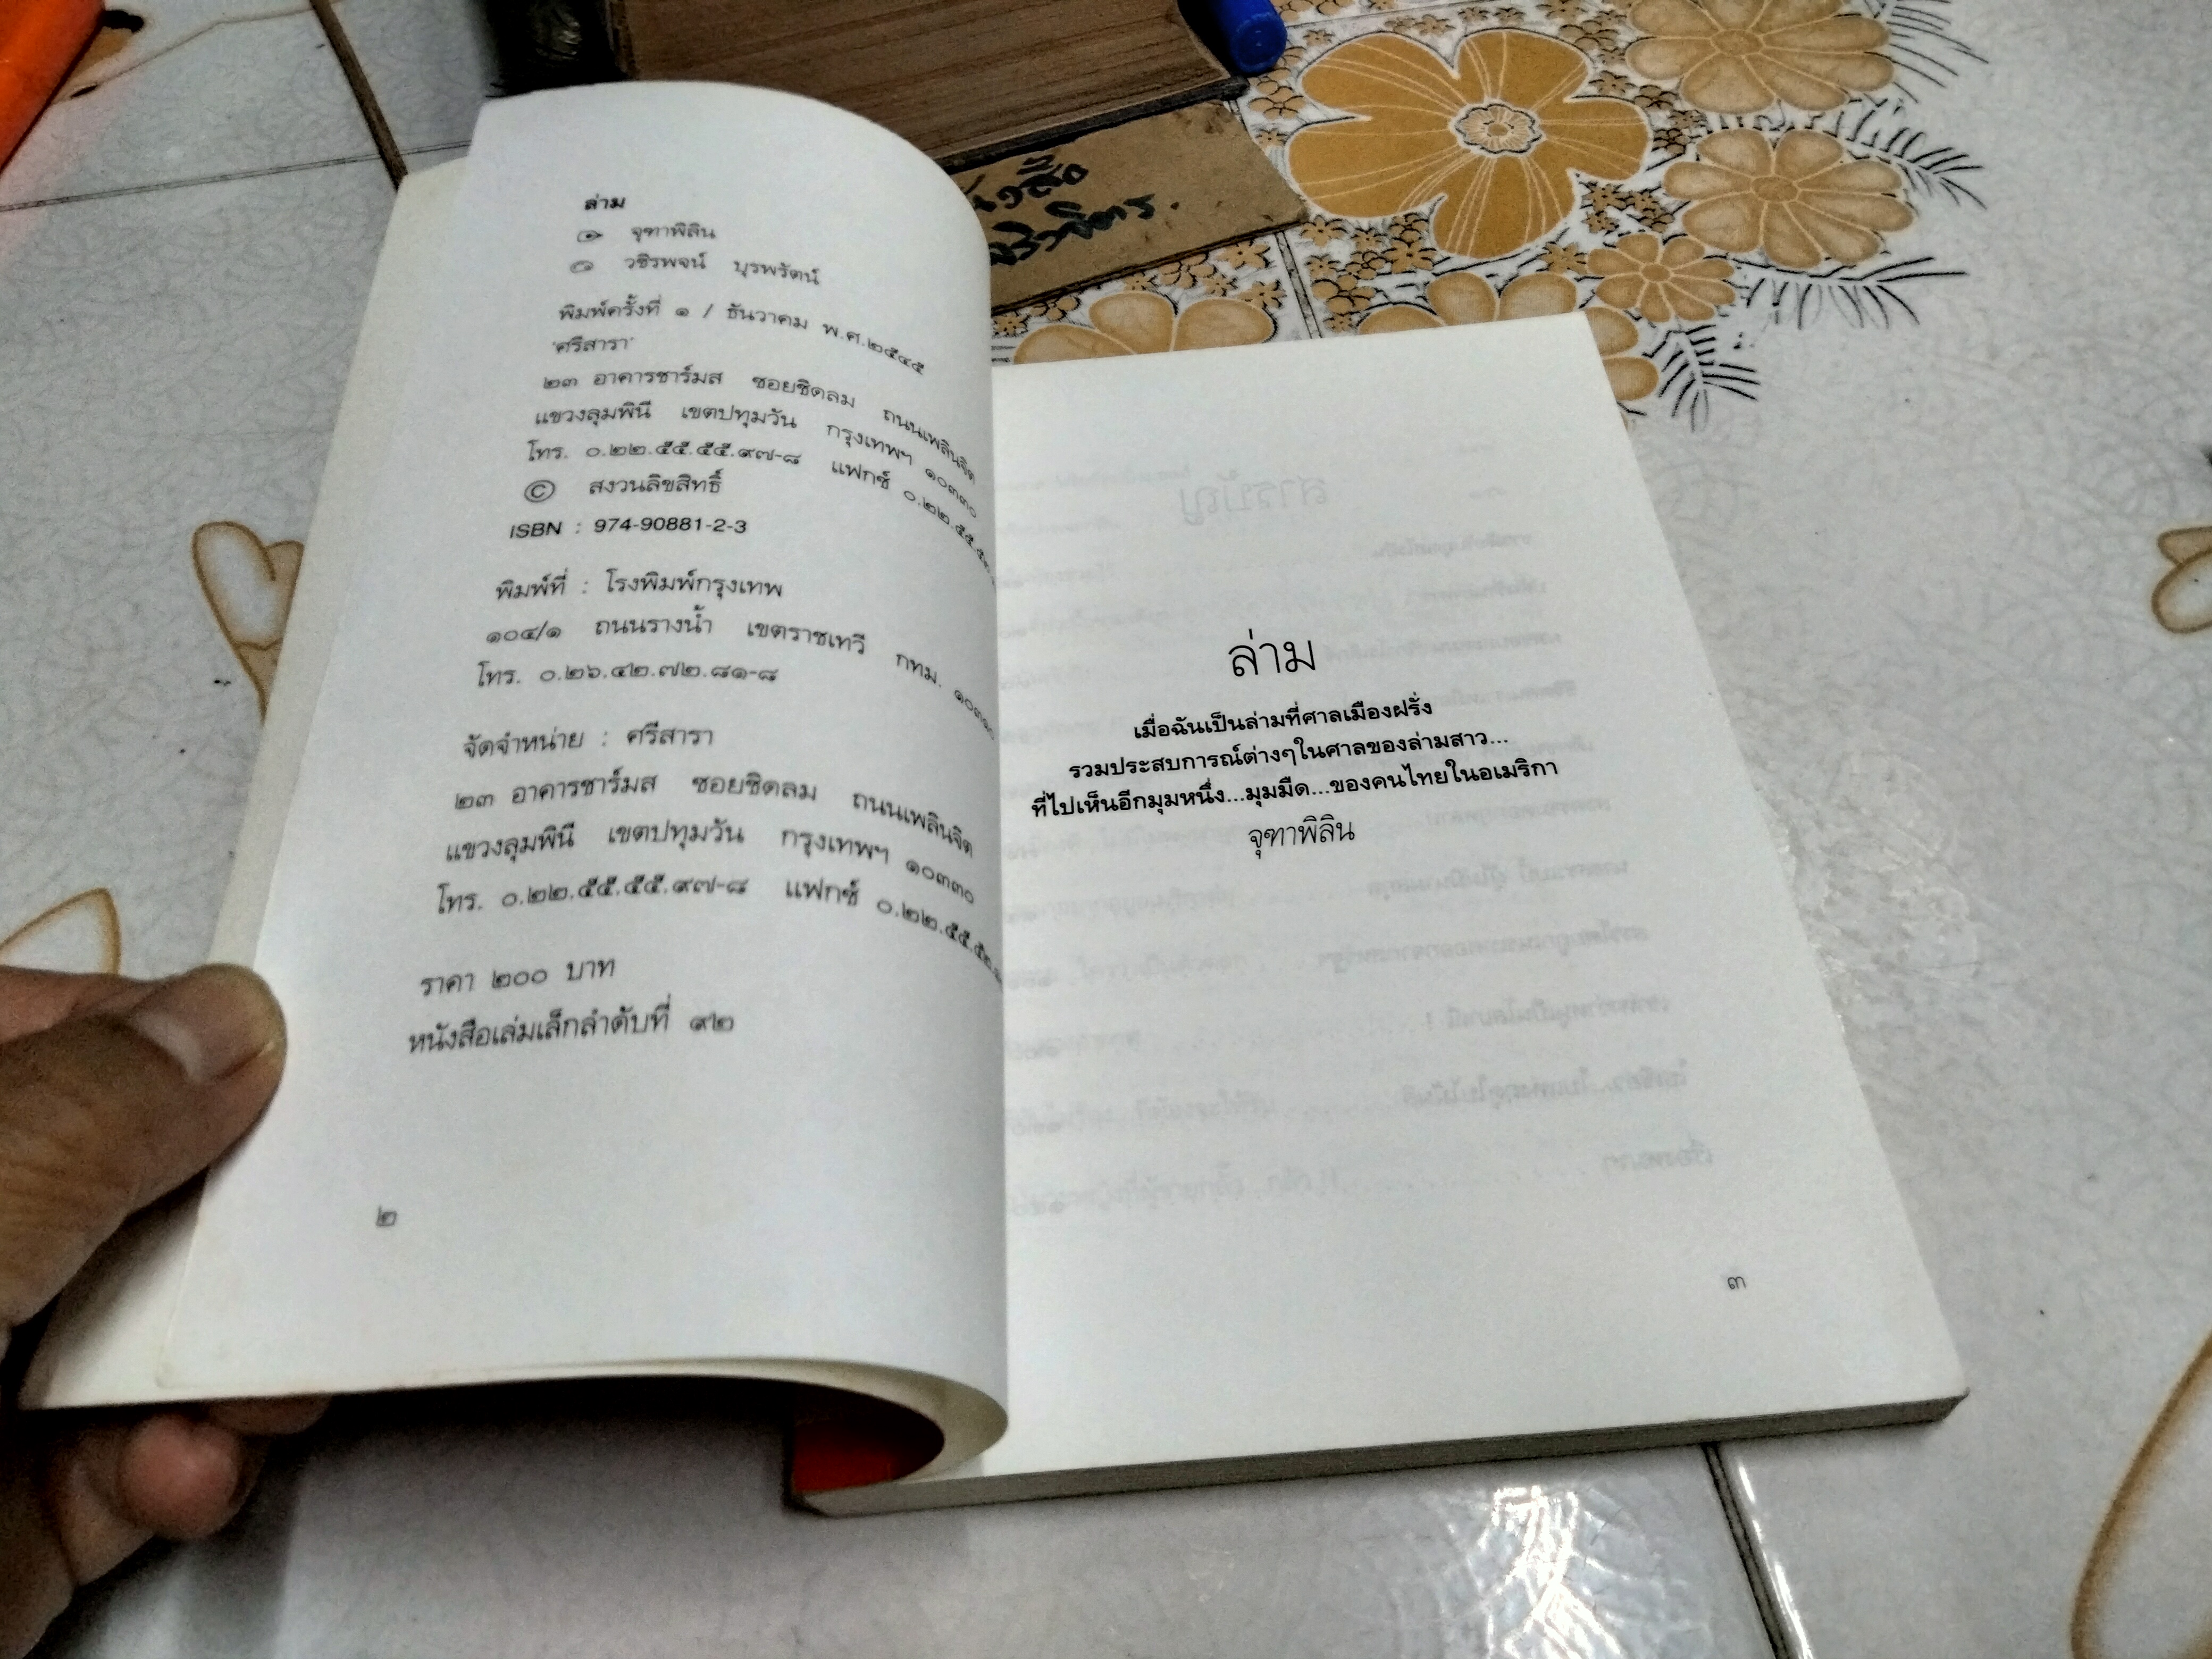 ล่าม
จุฑาพิลิน
วชิรพจน์ บุรพรัตน์
พิมพ์ครั้งที่ ๑ / ธันวาคม พ.ศ.๒๕๔๕
'ศรีสารา'
๒๓ อาคารชาร์มส ซอยชิดลม ถนนเพลินจิต
แขวงลุมพินี เขตปทุมวัน กรุงเทพฯ ๑๐๓๓๐
โทร. ๐.๒๒.๕๕.๕๕.๙๗-๘ แฟกซ์ ๐.๒๒.๕๕.
© สงวนลิขสิทธิ์
ISBN : 974-90881-2-3
พิมพ์ที่ : โรงพิมพ์กรุงเทพ
๑๐๔/๑ ถนนรางน้ำ เขตราชเทวี กทม.
โทร. ๐.๒๖.๔๒.๗๒.๘๑-๘
จัดจำหน่าย : ศรีสารา
๒๓ อาคารชาร์มส ซอยชิดลม ถนนเพลินจิต
แขวงลุมพินี เขตปทุมวัน กรุงเทพฯ ๑๐๓๓๐
โทร. ๐.๒๒.๕๕.๕๕.๙๗-๘ แฟกซ์ ๐.๒๒.๕๕.๕๒.
ราคา ๒๐๐ บาท
หนังสือเล่มเล็กลำดับที่ ๙๒
๒
ล่าม
เมื่อฉันเป็นล่ามที่ศาลเมืองฝรั่ง
รวมประสบการณ์ต่างๆในศาลของล่ามสาว...
ที่ไปเห็นอีกมุมหนึ่ง...มุมมืด...ของคนไทยในอเมริกา
จุฑาพิลิน
๓